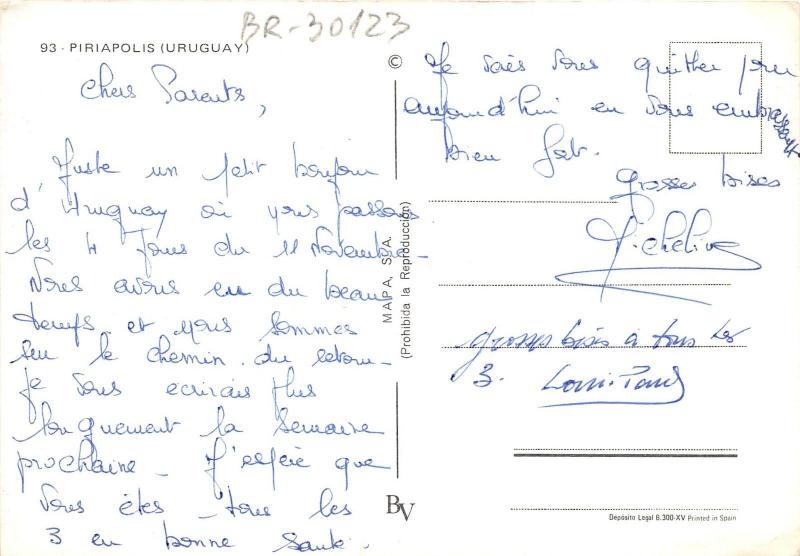 BR-30123
93 - PIRIAPOLIS (URUGUAY)
Chers Parents,
Juste un petit bonjour
d'Uruguay où nous passons
les 4 jours du 11 Novembre -
Nous avons eu du beau
temps et nous sommes
sur le chemin du retour -
Je vous écrirais plus
longuement la semaine
prochaine - J'espère que
vous êtes tous les
3 en bonne santé.
©
MAPA, S.A.
(Prohibida la Reproducción)
BV
Je vais vous quitter pour
aujourd'hui en vous embrassant
bien fort.
grosses bises
Micheline
grosses bises à tous les
3. Louis Paul
Depósito Legal B.300-XV Printed in Spain